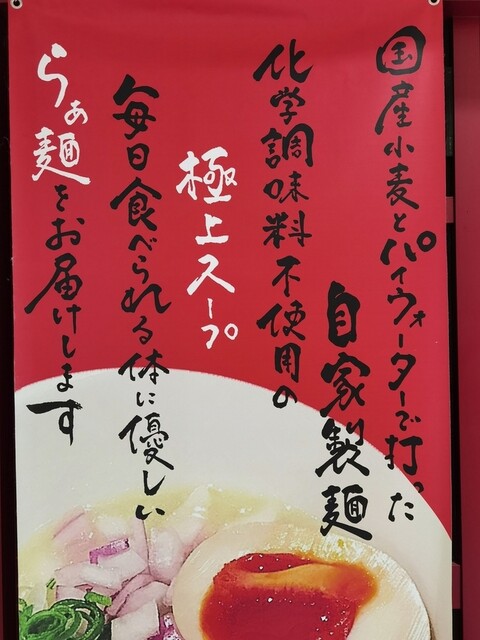 国産小麦とパイウォーターで打った
自家製麺
化学調味料不使用の
極上スープ
毎日食べられる体に優しい
らぁ麺をお届けします